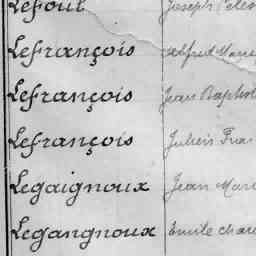 Lefoul Joseph
Lefrançois Alfred
Lefrançois Jean Bapt
Lefrançois Julien Fra
Legaignoux Jean Mari
Legangnoux Emile Char